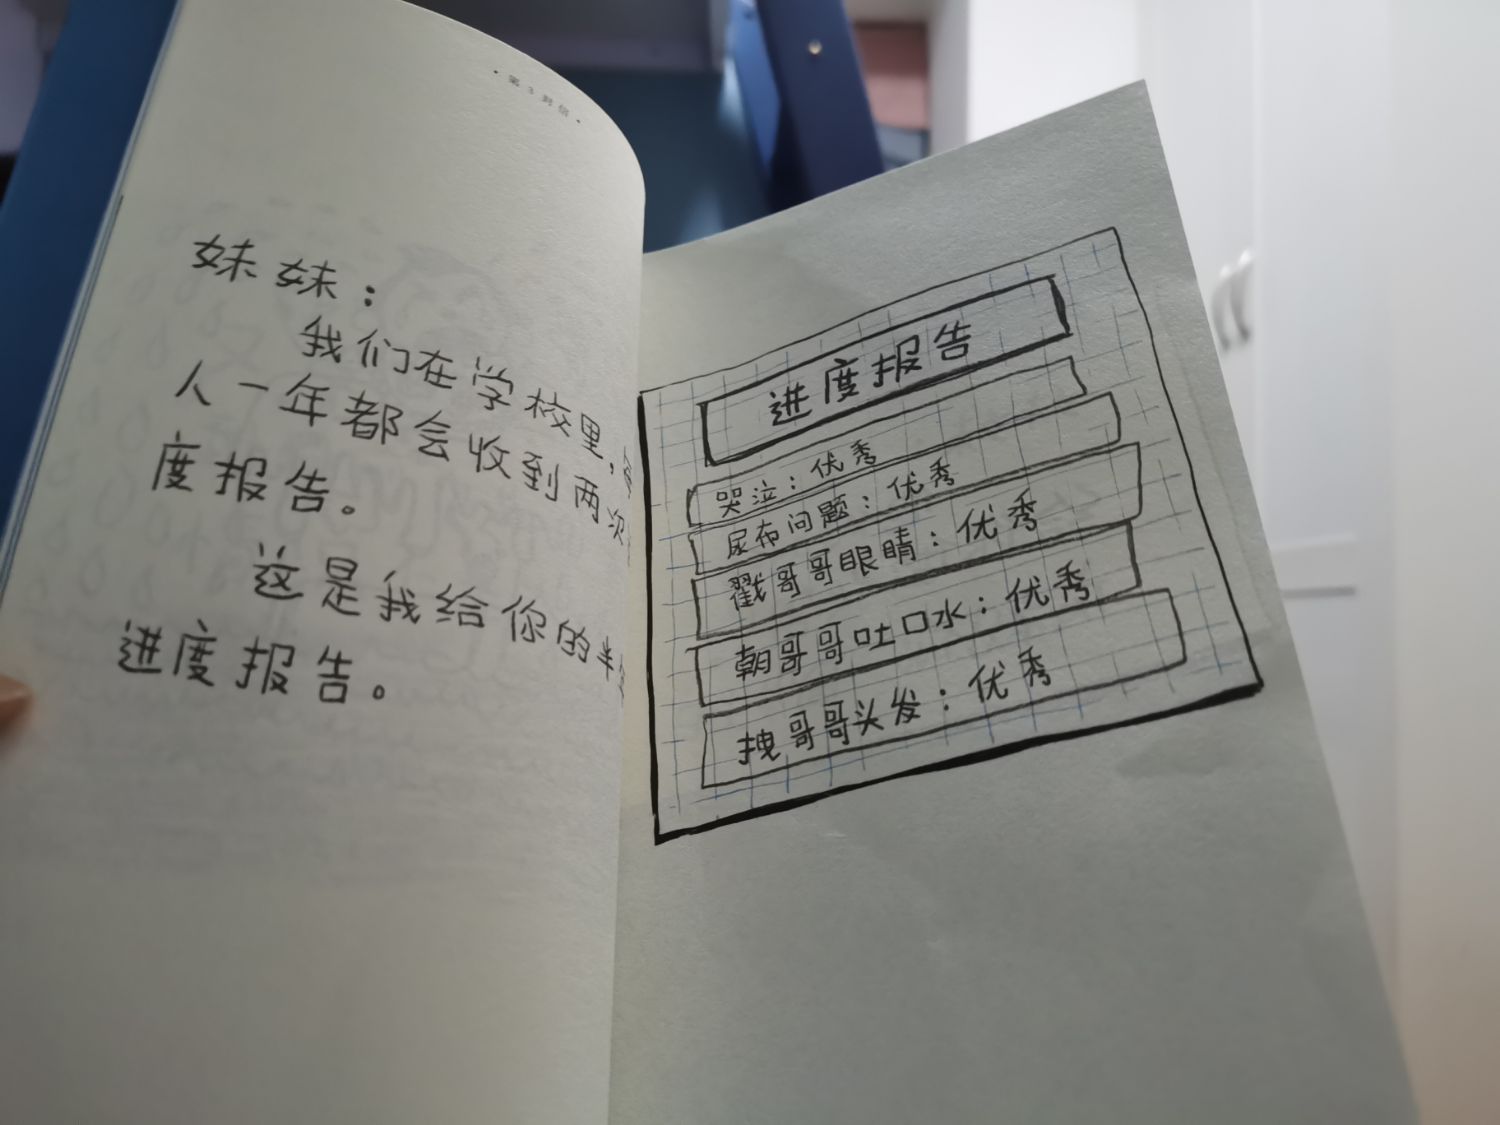 ·第3封信·
妹妹：
我们在学校里，每
人一年都会收到两次
度报告。
这是我给你的半
进度报告。
进度报告
哭泣：优秀
尿布问题：优秀
戳哥哥眼睛：优秀
朝哥哥吐口水：优秀
拽哥哥头发：优秀